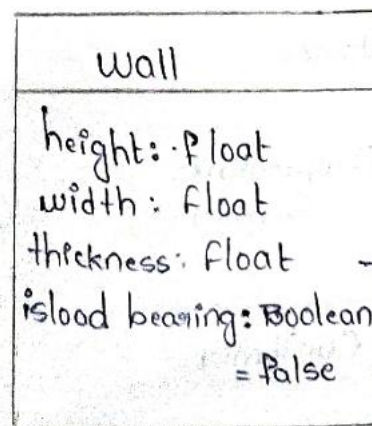 Wall
height: float
width: float
thickness: float -
islood bearing: Boolean
= false